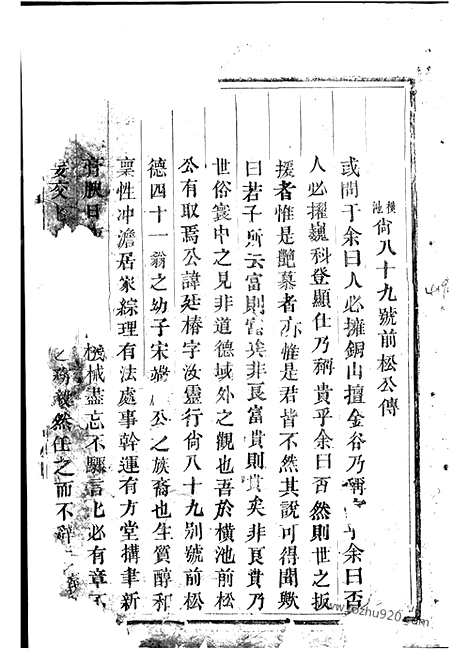 橫池尙八十九號前松公傳
或問于余曰人必擁銅山擅金谷乃稱 乎余曰否
人必擢巍科登顯仕乃稱貴乎余曰否然則世之扳
援者惟是艷慕者亦惟是君皆不然其說可得聞歟
曰若子所云富則富矣非良富貴則貴矣非良貴乃
世俗寰中之見非道德域外之觀也吾於橫池前松
公有取焉公諱延椿字汝靈行尙八十九別號前松
德四十一翁之幼子宋 公之族裔也生質醇和
稟性冲澹居家綜理有法處事幹運有方堂搆聿新
機械盡忘不驟言比必有章
之 毅然任之而不辭
www.zozhu920.com